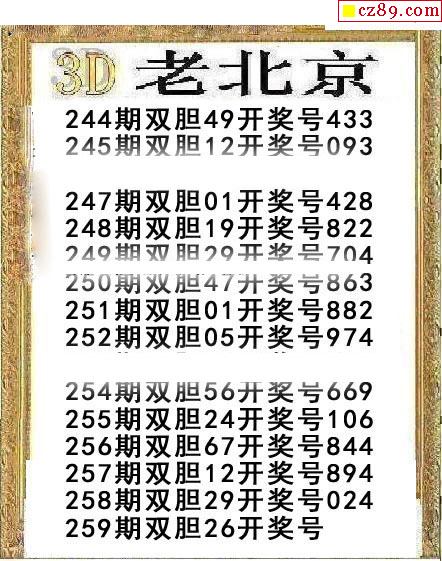 cz89.com
3D 老北京
244期双胆49开奖号433
245期双胆12开奖号093
247期双胆01开奖号428
248期双胆19开奖号822
249期双胆29开奖号704
250期双胆47开奖号863
251期双胆01开奖号882
252期双胆05开奖号974
254期双胆56开奖号669
255期双胆24开奖号106
256期双胆67开奖号844
257期双胆12开奖号894
258期双胆29开奖号024
259期双胆26开奖号